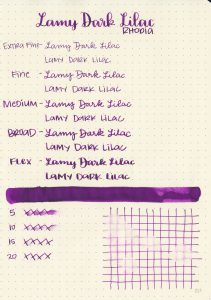 Lamy Dark Lilac
RHODIA
Extra Fine - Lamy Dark Lilac
LAMY DARK LILAC
Fine - Lamy Dark Lilac
LAMY DARK LILAC
Medium - Lamy Dark Lilac
LAMY DARK LILAC
BROAD - Lamy Dark Lilac
LAMY DARK LILAC
Flex - Lamy Dark Lilac
LAMY DARK LILAC
5 XXXX
10 XXXX
15 XXXX
20 XXXX